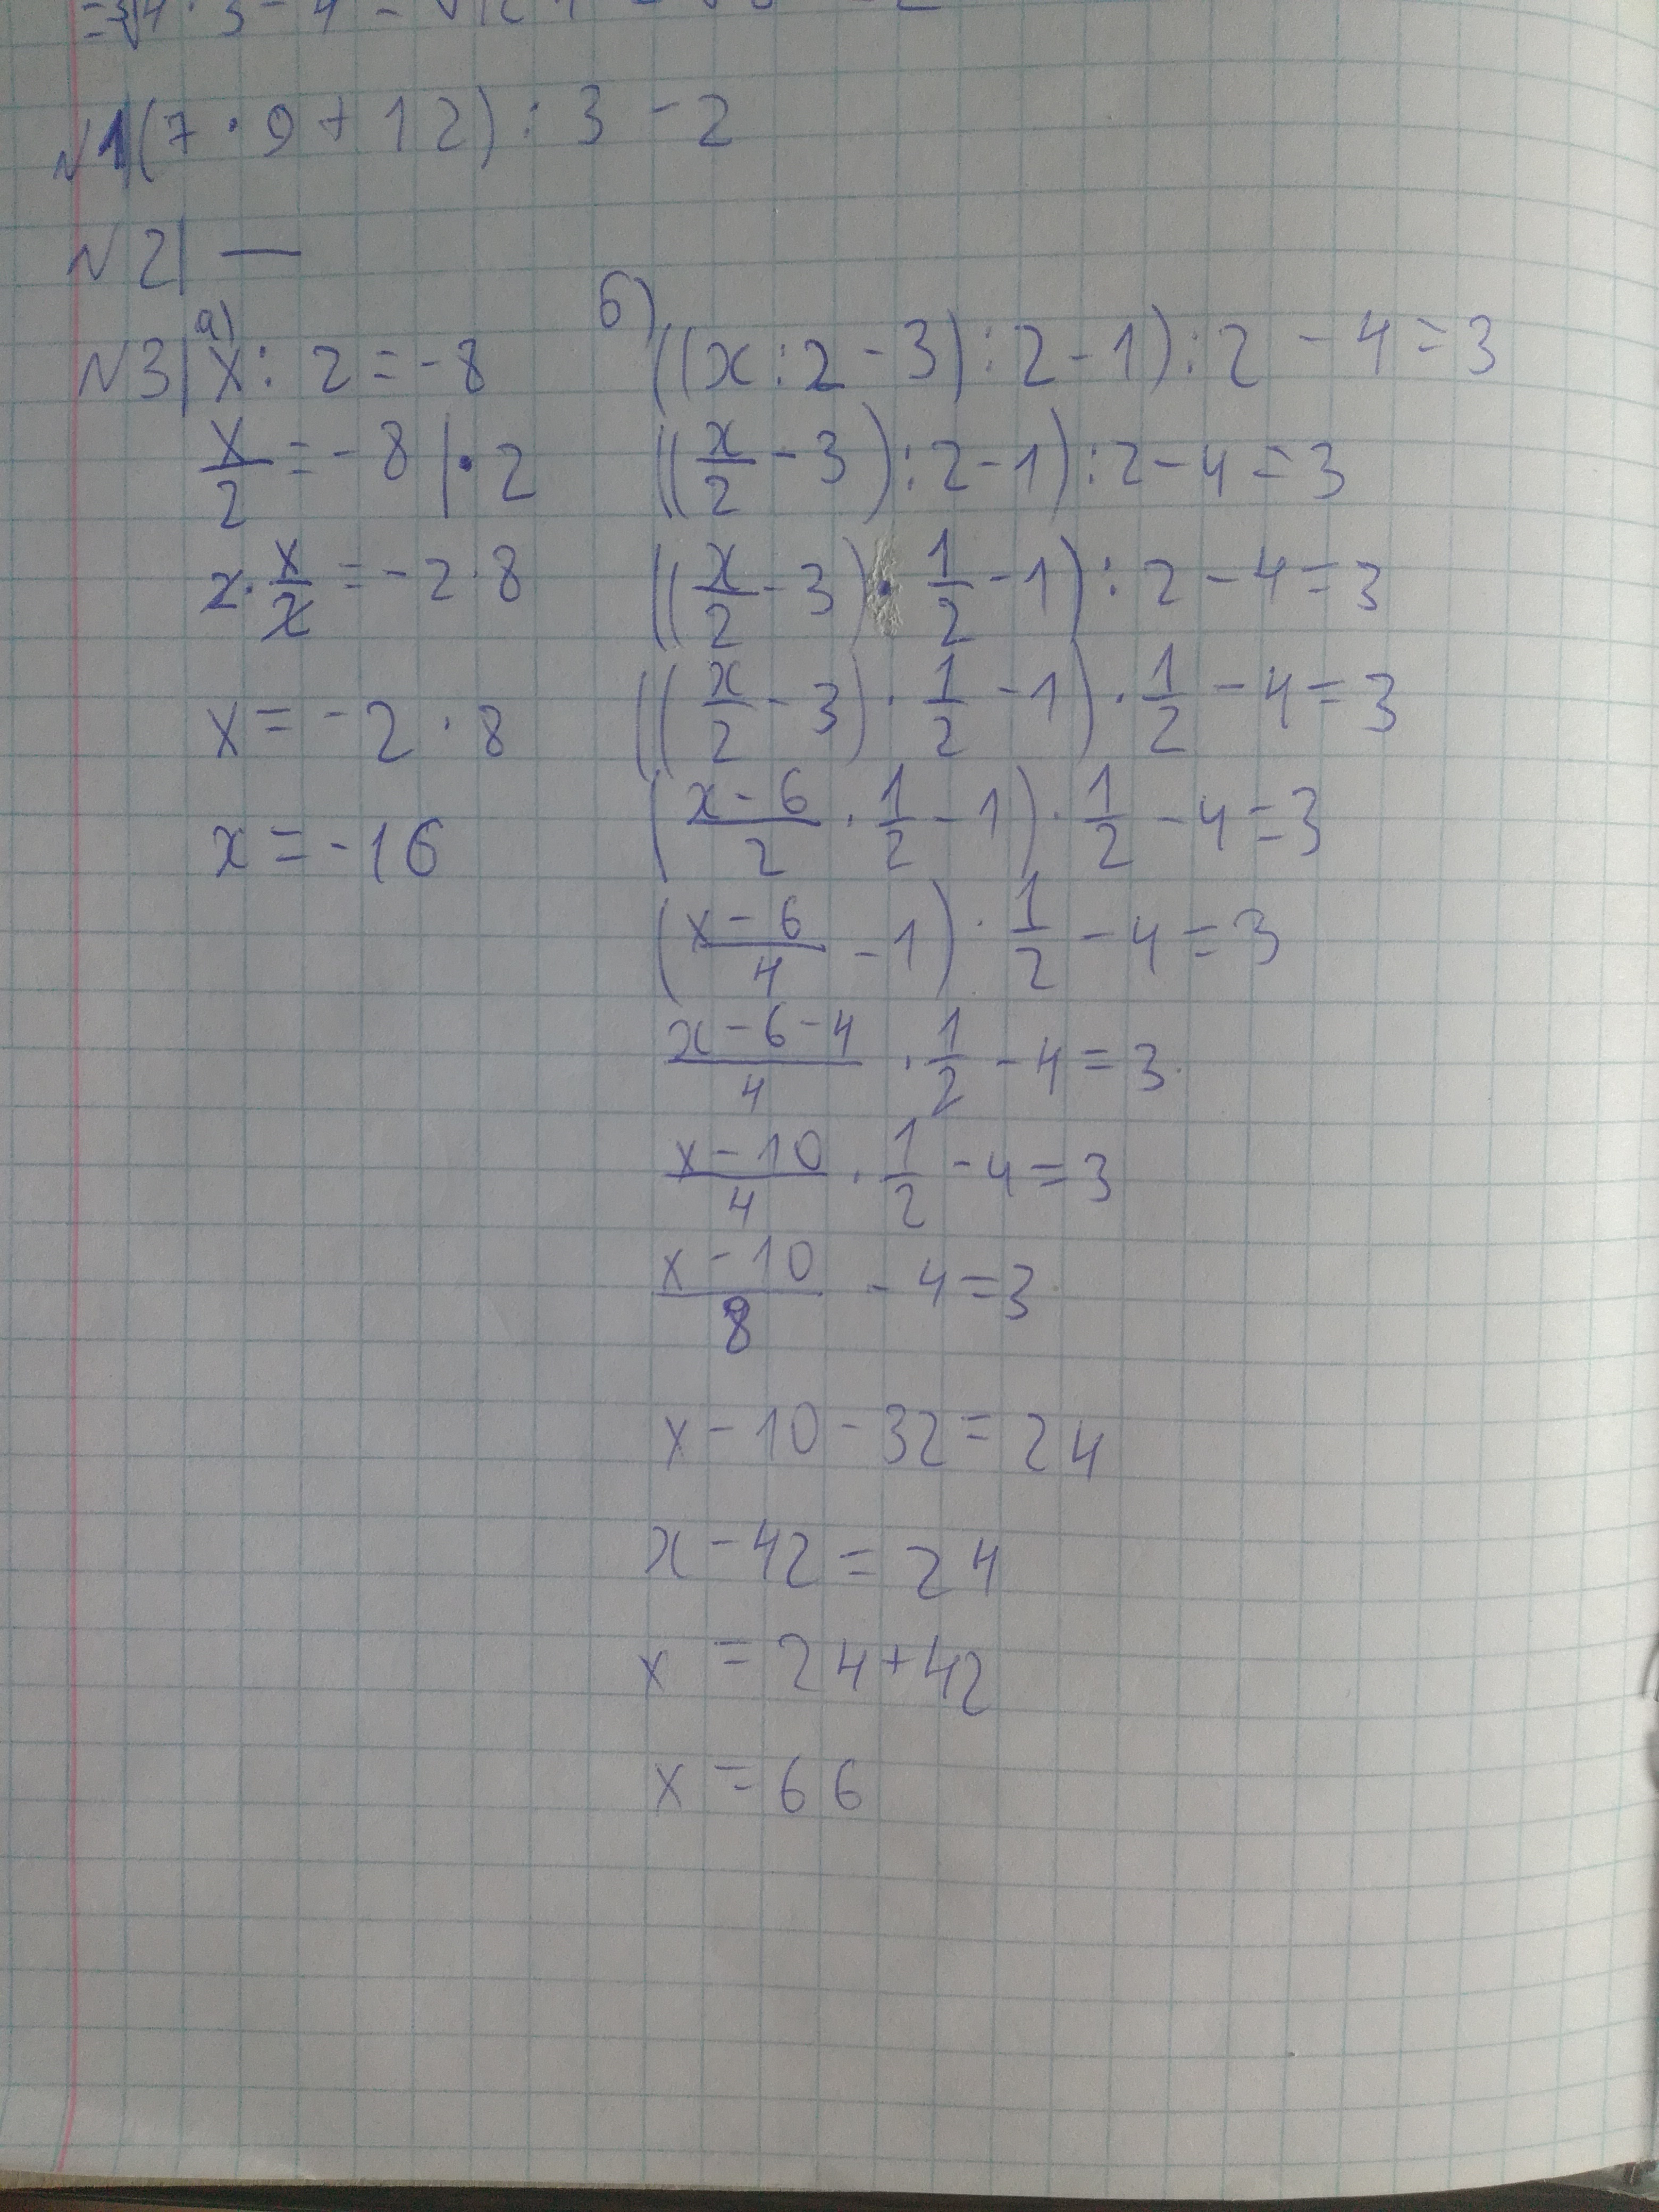 №1 (7 · 9 + 12) : 3 - 2
№2 —
№3 а) x : 2 = -8
x/2 = -8 | · 2
2 · x/2 = -2 · 8
x = -2 · 8
x = -16
б) ((x : 2 - 3) : 2 - 1) : 2 - 4 = 3
((x/2 - 3) : 2 - 1) : 2 - 4 = 3
((x/2 - 3) · 1/2 - 1) : 2 - 4 = 3
((x/2 - 3) · 1/2 - 1) · 1/2 - 4 = 3
(x - 6/2 · 1/2 - 1) · 1/2 - 4 = 3
(x - 6/4 - 1) · 1/2 - 4 = 3
x - 6 - 4/4 · 1/2 - 4 = 3
x - 10/4 · 1/2 - 4 = 3
x - 10/8 - 4 = 3
x - 10 - 32 = 24
x - 42 = 24
x = 24 + 42
x = 66